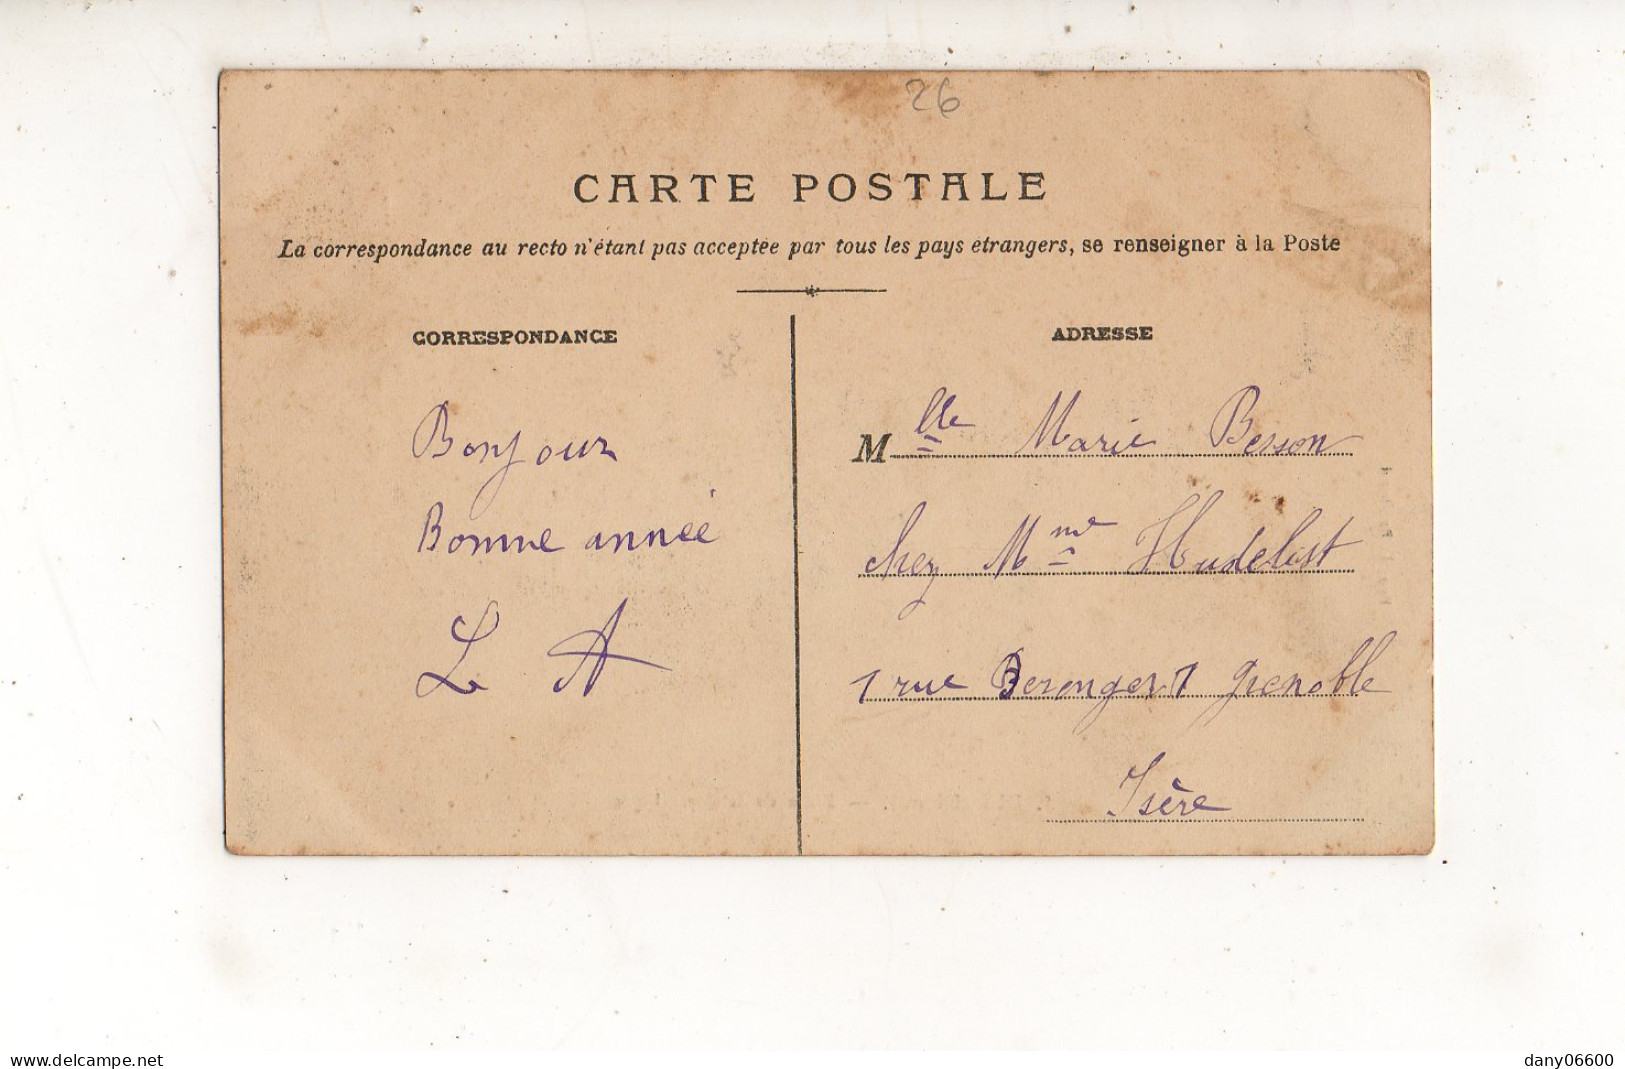 26
CARTE POSTALE
La correspondance au recto n'étant pas acceptée par tous les pays étrangers, se renseigner à la Poste
CORRESPONDANCE
Bonjour
Bonne année
L A
ADRESSE
Mlle Marie Besson
chez Mme Hudelost
1 rue Berenger 1 Grenoble
Isère
www.delcampe.net
dany06600